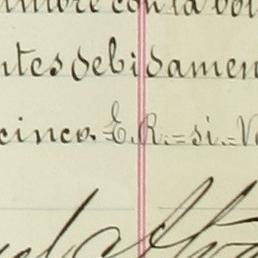 umbre con la vol
ntes debidamen
cinco. = E. R. = si. = V